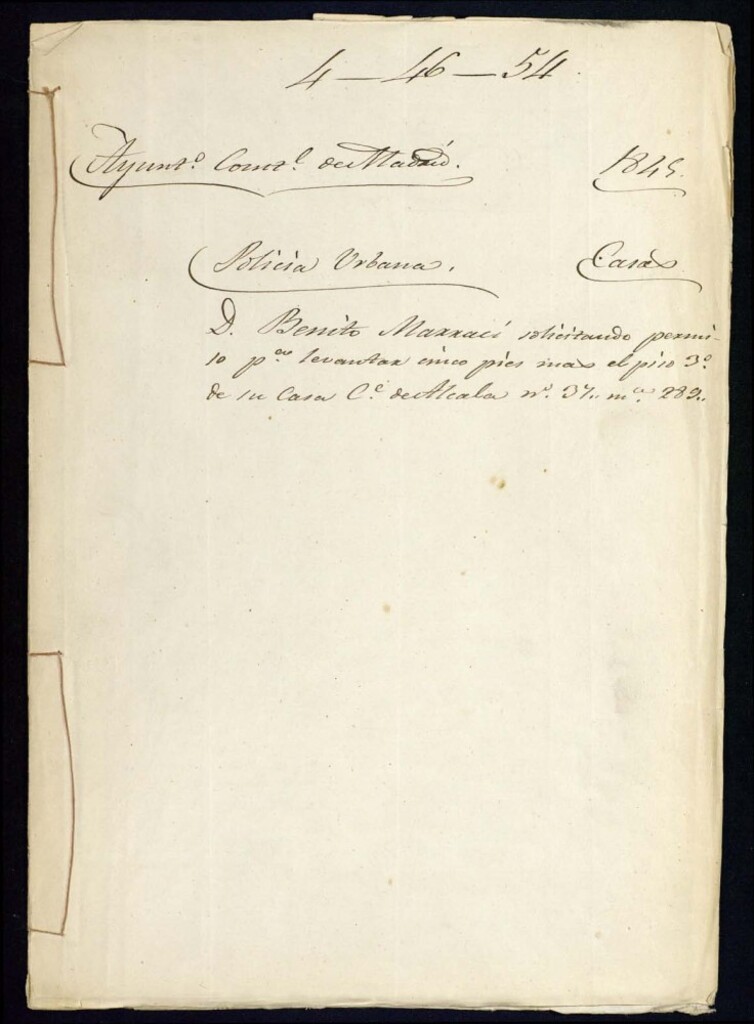 4-46-54.
Ayunt.º Const.l de Madrid. 1845.
Policia Urbana. Casas
D. Benito Marraci solicitando permi-
so p.ª levantar cinco pies mas el piso 3.º
de su Casa C.e de Alcala n.º 37.. m.ª 289..